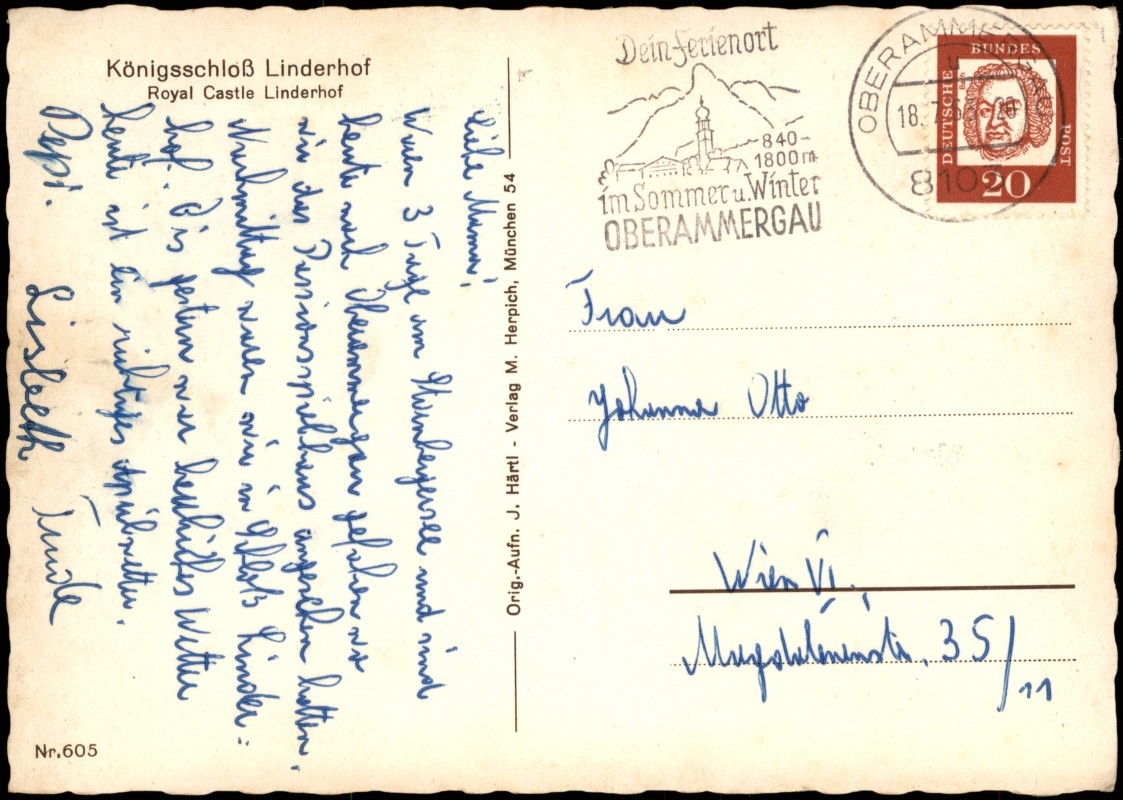 Königsschloß Linderhof
Royal Castle Linderhof
Liebe Mama!
Waren 3 Tage am Starnbergersee und sind
heute nach Oberammergau gefahren wo
wir das Passionsspielhaus angesehen hatten.
Nachmittag waren wir in Schloß Linder-
hof. Bis gestern war herrliches Wetter
heute ist ein richtiges Aprilwetter.
Pepi. Lisbeth Trude
Nr.605
Orig.-Aufn. J. Härtl - Verlag M. Herpich, München 54
Dein Ferienort
840-
1800m
im Sommer u. Winter
OBERAMMERGAU
OBERAMMERGAU
18. 7.
8103
DEUTSCHE
BUNDES
POST
20
Frau
Johanna Otto
Wien VI.,
Magdalenenstr. 35/
11